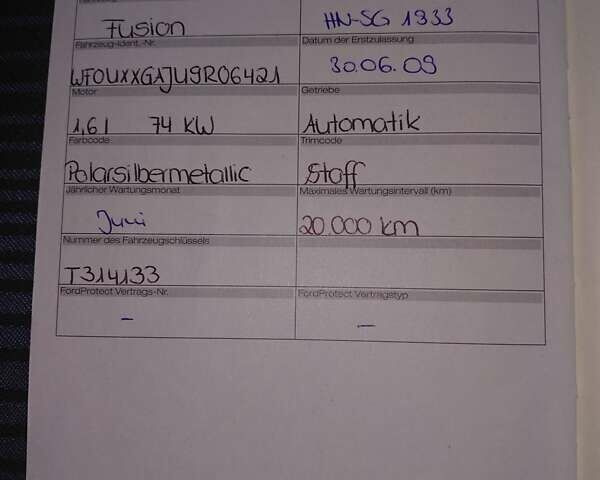 Fusion HN-SG 1933
Fahrzeug-Ident.-Nr. Datum der Erstzulassung
WF0UXXGAJU9R06421 30.06.09
Motor Getriebe
1,6 l 74 KW Automatik
Farbcode Trimcode
Polarsilbermetallic Stoff
Jährlicher Wartungsmonat Maximales Wartungsintervall (km)
Juni 20.000 km
Nummer des Fahrzeugschlüssels
T314133
FordProtect Vertrags-Nr. FordProtect Vertragstyp
– –